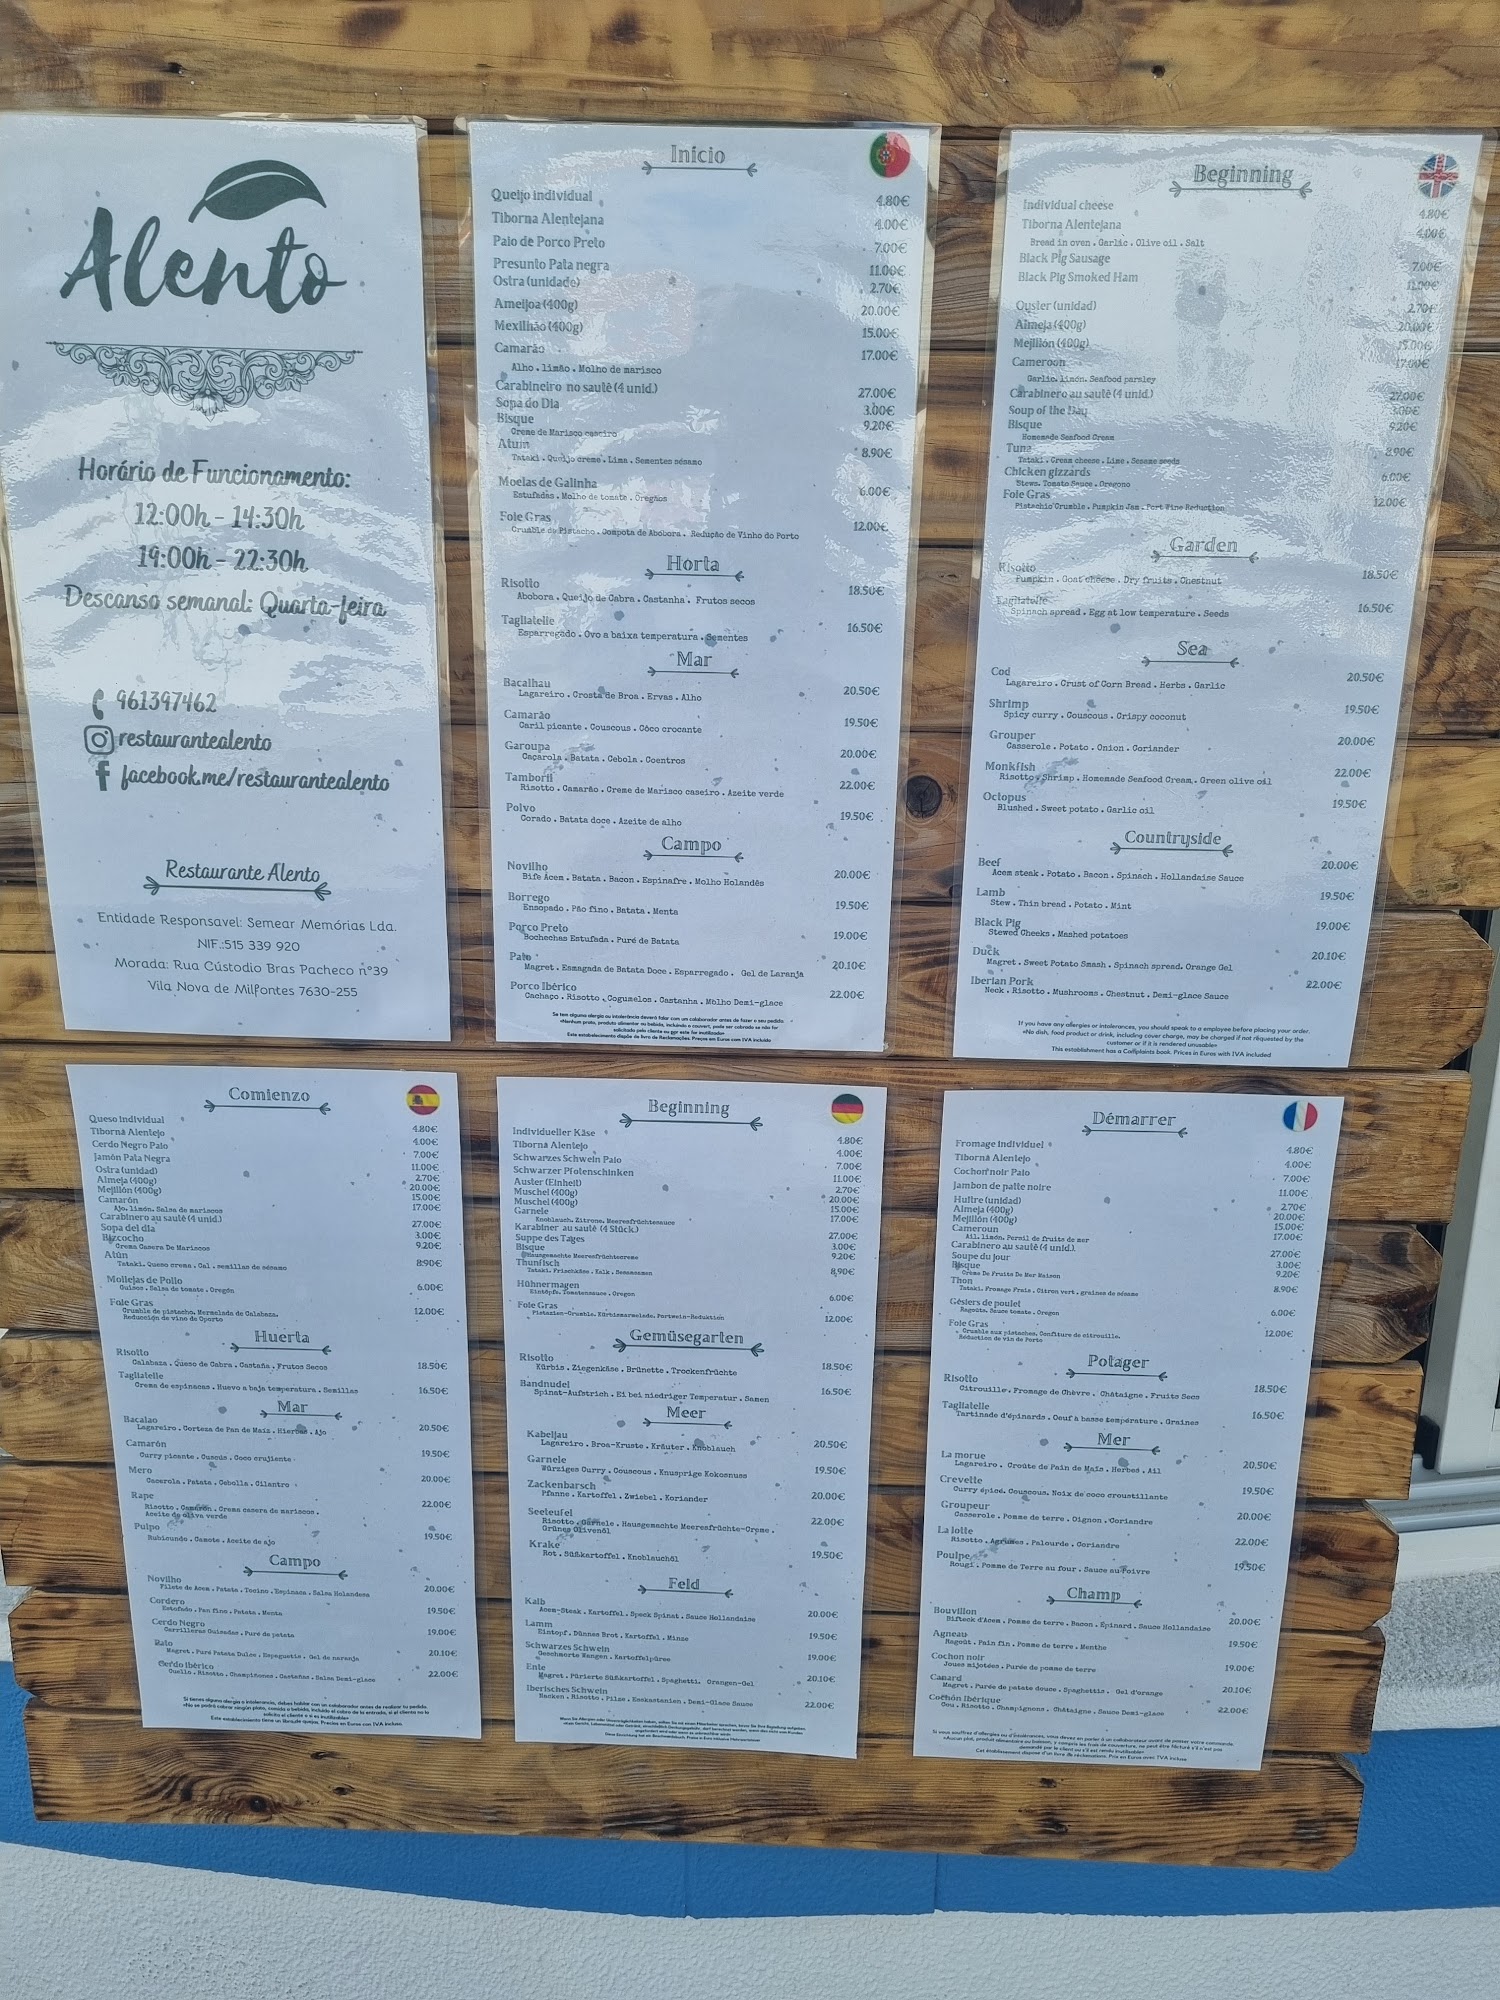 Alento
Horário de Funcionamento:
12:00h - 14:30h
19:00h - 22:30h
Descanso semanal: Quarta-feira
961397462
restaurantealento
facebook.me/restaurantealento
Restaurante Alento
Entidade Responsavel: Semear Memórias Lda.
NIF.:515 339 920
Morada: Rua Cústodio Bras Pacheco nº39
Vila Nova de Milfontes 7630-255
Início
Queijo individual 4.80€
Tiborna Alentejana 4.00€
Paio de Porco Preto 7.00€
Presunto Pata negra 11.00€
Ostra (unidade) 2.70€
Ameijoa (400g) 20.00€
Mexilhão (400g) 15.00€
Camarão 17.00€
Alho . limão . Molho de marisco
Carabineiro no sauté (4 unid.) 27.00€
Sopa do Dia 3.00€
Bisque 9.20€
Creme de Marisco caseiro
Atum 8.90€
Tataki . Queijo creme . Lima . Sementes sésamo
Moelas de Galinha 6.00€
Estufadas . Molho de tomate . Oregãos
Foie Gras 12.00€
Crumble de Pistacho . Compota de Abobora . Redução de Vinho do Porto
Horta
Risotto 18.50€
Abobora . Queijo de Cabra . Castanha . Frutos secos
Tagliatelle 16.50€
Esparregado . Ovo a baixa temperatura . Sementes
Mar
Bacalhau 20.50€
Lagareiro . Crosta de Broa . Ervas . Alho
Camarão 19.50€
Caril picante . Couscous . Côco crocante
Garoupa 20.00€
Caçarola . Batata . Cebola . Coentros
Tamboril 22.00€
Risotto . Camarão . Creme de Marisco caseiro . Azeite verde
Polvo 19.50€
Corado . Batata doce . Azeite de alho
Campo
Novilho 20.00€
Bife Acem . Batata . Bacon . Espinafre . Molho Holandês
Borrego 19.50€
Ensopado . Pão fino . Batata . Menta
Porco Preto 19.00€
Bochechas Estufada . Puré de Batata
Pato 20.10€
Magret . Esmagada de Batata Doce . Esparregado . Gel de Laranja
Porco Ibérico 22.00€
Cachaço . Risotto . Cogumelos . Castanha . Molho Demi-glace
Se tem alguma alergia ou intolerância deverá falar com um colaborador antes de fazer o seu pedido.
«Nenhum prato, produto alimentar ou bebida, incluindo o couvert, pode ser cobrado se não for
solicitado pelo cliente ou por este for inutilizado»
Este estabelecimento dispõe de livro de Reclamações. Preços em Euros com IVA incluído
Beginning
Individual cheese 4.80€
Tiborna Alentejana 4.00€
Bread in oven . Garlic . Olive oil . Salt
Black Pig Sausage 7.00€
Black Pig Smoked Ham 11.00€
Oyster (unidad) 2.70€
Almeja (400g) 20.00€
Mejillón (400g) 15.00€
Cameroon 17.00€
Garlic. limón. Seafood parsley
Carabinero au sauté (4 unid.) 27.00€
Soup of the Day 3.00€
Bisque 9.20€
Homemade Seafood Cream
Tuna 8.90€
Tataki . Cream cheese . Lime . Sesame seeds
Chicken gizzards 6.00€
Stews. Tomato Sauce . Oregono
Foie Gras 12.00€
Pistachio Crumble . Pumpkin Jam . Port Wine Reduction
Garden
Risotto 18.50€
Pumpkin . Goat cheese . Dry fruits . Chestnut
Tagliatelle 16.50€
Spinach spread . Egg at low temperature . Seeds
Sea
Cod 20.50€
Lagareiro . Crust of Corn Bread . Herbs . Garlic
Shrimp 19.50€
Spicy curry . Couscous . Crispy coconut
Grouper 20.00€
Casserole . Potato . Onion . Coriander
Monkfish 22.00€
Risotto . Shrimp . Homemade Seafood Cream . Green olive oil
Octopus 19.50€
Blushed . Sweet potato . Garlic oil
Countryside
Beef 20.00€
Acem steak . Potato . Bacon . Spinach . Hollandaise Sauce
Lamb 19.50€
Stew . Thin bread . Potato . Mint
Black Pig 19.00€
Stewed Cheeks . Mashed potatoes
Duck 20.10€
Magret . Sweet Potato Smash . Spinach spread. Orange Gel
Iberian Pork 22.00€
Neck . Risotto . Mushrooms . Chestnut . Demi-glace Sauce
If you have any allergies or intolerances, you should speak to a employee before placing your order.
«No dish, food product or drink, including cover charge, may be charged if not requested by the
customer or if it is rendered unusable»
This establishment has a Complaints book. Prices in Euros with IVA included
Comienzo
Queso individual 4.80€
Tiborna Alentejo 4.00€
Cerdo Negro Paio 7.00€
Jamón Pata Negra 11.00€
Ostra (unidad) 2.70€
Almeja (400g) 20.00€
Mejillón (400g) 15.00€
Camarón 17.00€
Ajo. limón. Salsa de mariscos
Carabinero au sauté (4 unid.) 27.00€
Sopa del día 3.00€
Bizcocho 9.20€
Crema Casera De Mariscos
Atún 8.90€
Tataki. Queso crema . Cal . semillas de sésamo
Mollejas de Pollo 6.00€
Guisos . Salsa de tomate . Oregón
Foie Gras 12.00€
Crumble de pistacho. Mermelada de Calabaza.
Reducción de vino de Oporto
Huerta
Risotto 18.50€
Calabaza . Queso de Cabra . Castaña . Frutos Secos
Tagliatelle 16.50€
Crema de espinacas . Huevo a baja temperatura . Semillas
Mar
Bacalao 20.50€
Lagareiro . Corteza de Pan de Maíz . Hierbas . Ajo
Camarón 19.50€
Curry picante . Cuscús . Coco crujiente
Mero 20.00€
Cacerola . Patata . Cebolla . Cilantro
Rape 22.00€
Risotto . Camarón . Crema casera de mariscos .
Aceite de oliva verde
Pulpo 19.50€
Rubicundo . Camote . Aceite de ajo
Campo
Novilho 20.00€
Filete de Acem . Patata . Tocino . Espinaca . Salsa Holandesa
Cordero 19.50€
Estofado . Pan fino . Patata . Menta
Cerdo Negro 19.00€
Carrilleras Guisadas . Puré de patata
Pato 20.10€
Magret . Puré Patata Dulce . Espaguetis . Gel de naranja
Cerdo Ibérico 22.00€
Cuello . Risotto . Champiñones . Castañas . Salsa Demi-glace
Si tienes alguna alergia o intolerancia, debes hablar con un colaborador antes de realizar tu pedido.
«No se podrá cobrar ningún plato, comida o bebida, incluido el cobro de la entrada, si el cliente no lo
solicita o si es inutilizado»
Este establecimiento tiene un libro de quejas. Precios en Euros con IVA incluso.
Beginning
Individueller Käse 4.80€
Tiborna Alentejo 4.00€
Schwarzes Schwein Paio 7.00€
Schwarzer Pfotenschinken 11.00€
Auster (Einheit) 2.70€
Muschel (400g) 20.00€
Muschel (400g) 15.00€
Garnele 17.00€
Knoblauch. Zitrone. Meeresfrüchtesauce
Karabiner au sauté (4 Stück.) 27.00€
Suppe des Tages 3.00€
Bisque 9.20€
Hausgemachte Meeresfrüchtecreme
Thunfisch 8,90€
Tataki. Frischkäse . Kalk . Sesamsamen
Hühnermagen 6.00€
Eintöpfe. Tomatensauce . Oregon
Foie Gras 12.00€
Pistazien-Crumble. Kürbismarmelade. Portwein-Reduktion
Gemüsegarten
Risotto 18.50€
Kürbis . Ziegenkäse . Brünette . Trockenfrüchte
Bandnudel 16.50€
Spinat-Aufstrich . Ei bei niedriger Temperatur . Samen
Meer
Kabeljau 20.50€
Lagareiro . Broa-Kruste . Kräuter . Knoblauch
Garnele 19.50€
Würziges Curry . Couscous . Knusprige Kokosnuss
Zackenbarsch 20.00€
Pfanne . Kartoffel . Zwiebel . Koriander
Seeteufel 22.00€
Risotto . Garnele . Hausgemachte Meeresfrüchte-Creme .
Grünes Olivenöl
Krake 19.50€
Rot . Süßkartoffel . Knoblauchöl
Feld
Kalb 20.00€
Acem-Steak . Kartoffel . Speck Spinat . Sauce Hollandaise
Lamm 19.50€
Eintopf . Dünnes Brot . Kartoffel . Minze
Schwarzes Schwein 19.00€
Geschmorte Wangen . Kartoffelpüree
Ente 20.10€
Magret . Pürierte Süßkartoffel . Spaghetti. Orangen-Gel
Iberisches Schwein 22.00€
Nacken . Risotto . Pilze . Esskastanien . Demi-Glace Sauce
Démarrer
Fromage individuel 4.80€
Tiborna Alentejo 4.00€
Cochon noir Paio 7.00€
Jambon de patte noire 11.00€
Huître (unidad) 2.70€
Almeja (400g) 20.00€
Mejillón (400g) 15.00€
Cameroun 17.00€
Ail. limón. Persil de fruits de mer
Carabinero au sauté (4 unid.) 27.00€
Soupe du jour 3.00€
Bisque 9.20€
Crème De Fruits De Mer Maison
Thon 8.90€
Tataki. Fromage Frais . Citron vert . graines de sésame
Gésiers de poulet 6.00€
Ragoûts. Sauce tomate . Oregon
Foie Gras 12.00€
Crumble aux pistaches. Confiture de citrouille.
Réduction de vin de Porto
Potager
Risotto 18.50€
Citrouille . Fromage de Chèvre . Châtaigne . Fruits Secs
Tagliatelle 16.50€
Tartinade d'épinards . Oeuf à basse température . Graines
Mer
La morue 20,50€
Lagareiro . Croûte de Pain de Maïs . Herbes . Ail
Crevette 19.50€
Curry épicé. Couscous. Noix de coco croustillante
Groupeur 20.00€
Casserole . Pomme de terre . Oignon . Coriandre
La lotte 22.00€
Risotto . Agrumes . Palourde . Coriandre
Poulpe 19.50€
Rougi . Pomme de Terre au four . Sauce au Poivre
Champ
Bouvillon 20.00€
Bifteck d'Acem . Pomme de terre . Bacon . Épinard . Sauce Hollandaise
Agneau 19.50€
Ragoût . Pain fin . Pomme de terre . Menthe
Cochon noir 19.00€
Joues mijotées . Purée de pomme de terre
Canard 20.10€
Magret . Purée de patate douce . Spaghettis . Gel d'orange
Cochon Ibérique 22.00€
Cou . Risotto . Champignons . Châtaigne . Sauce Demi-glace
Si vous souffrez d'allergies ou d'intolérances, vous devez en parler à un collaborateur avant de passer votre commande.
«Aucun plat, produit alimentaire ou boisson, y compris les frais de couverture, ne peut être facturé s'il n'est pas
demandé par le client ou s'il est rendu inutilisable»
Cet établissement dispose d'un livre de réclamations. Prix en Euros avec TVA incluse